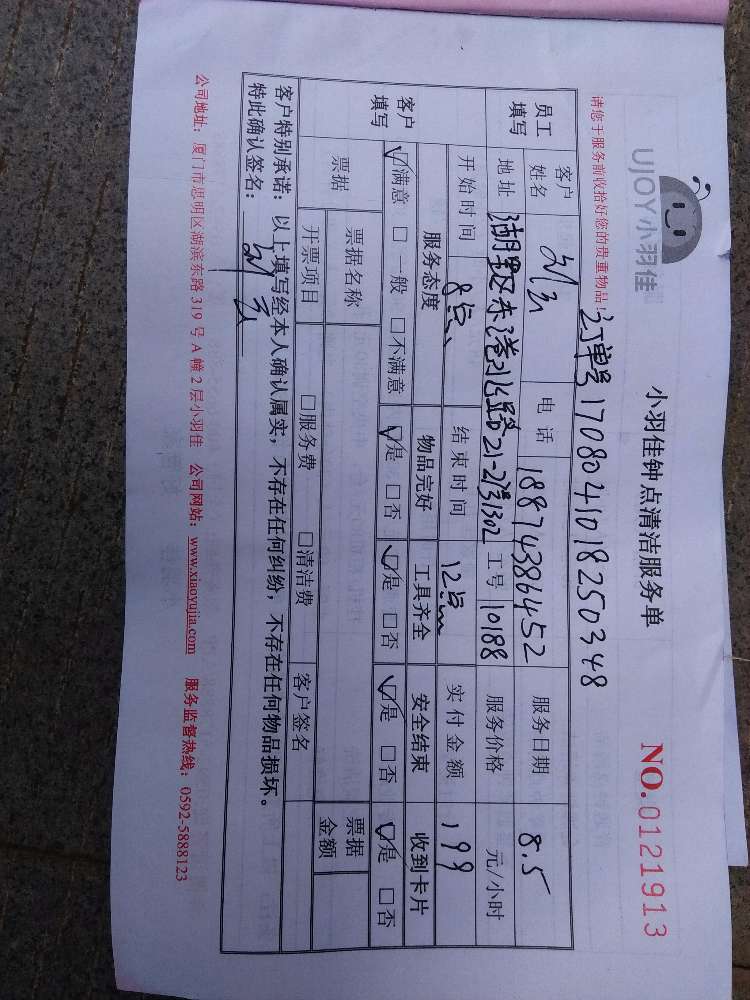 UJOY小羽佳
小羽佳钟点清洁服务单
NO. 0121913
请您于服务前收拾好您的贵重物品!
订单号1708041018250348
员工填写 客户姓名 电话 18874386452 服务日期 8.5
地址 湖里区 21-27号1302 工号 10188 服务价格 元/小时
开始时间 8点 结束时间 12点 实付金额 199
客户填写 服务态度 物品完好 工具齐全 安全结束 收到卡片
☑满意 □一般 □不满意 ☑是 □否 ☑是 □否 ☑是 □否 ☑是 □否
票据 票据名称 票据金额
开票项目 □服务费 □清洁费 客户签名
客户特别承诺:以上填写经本人确认属实,不存在任何纠纷,不存在任何物品损坏。
特此确认签名:
公司地址:厦门市思明区湖滨东路319号A幢2层小羽佳 公司网站:www.xiaoyujia.com 服务监督热线:0592-5888123